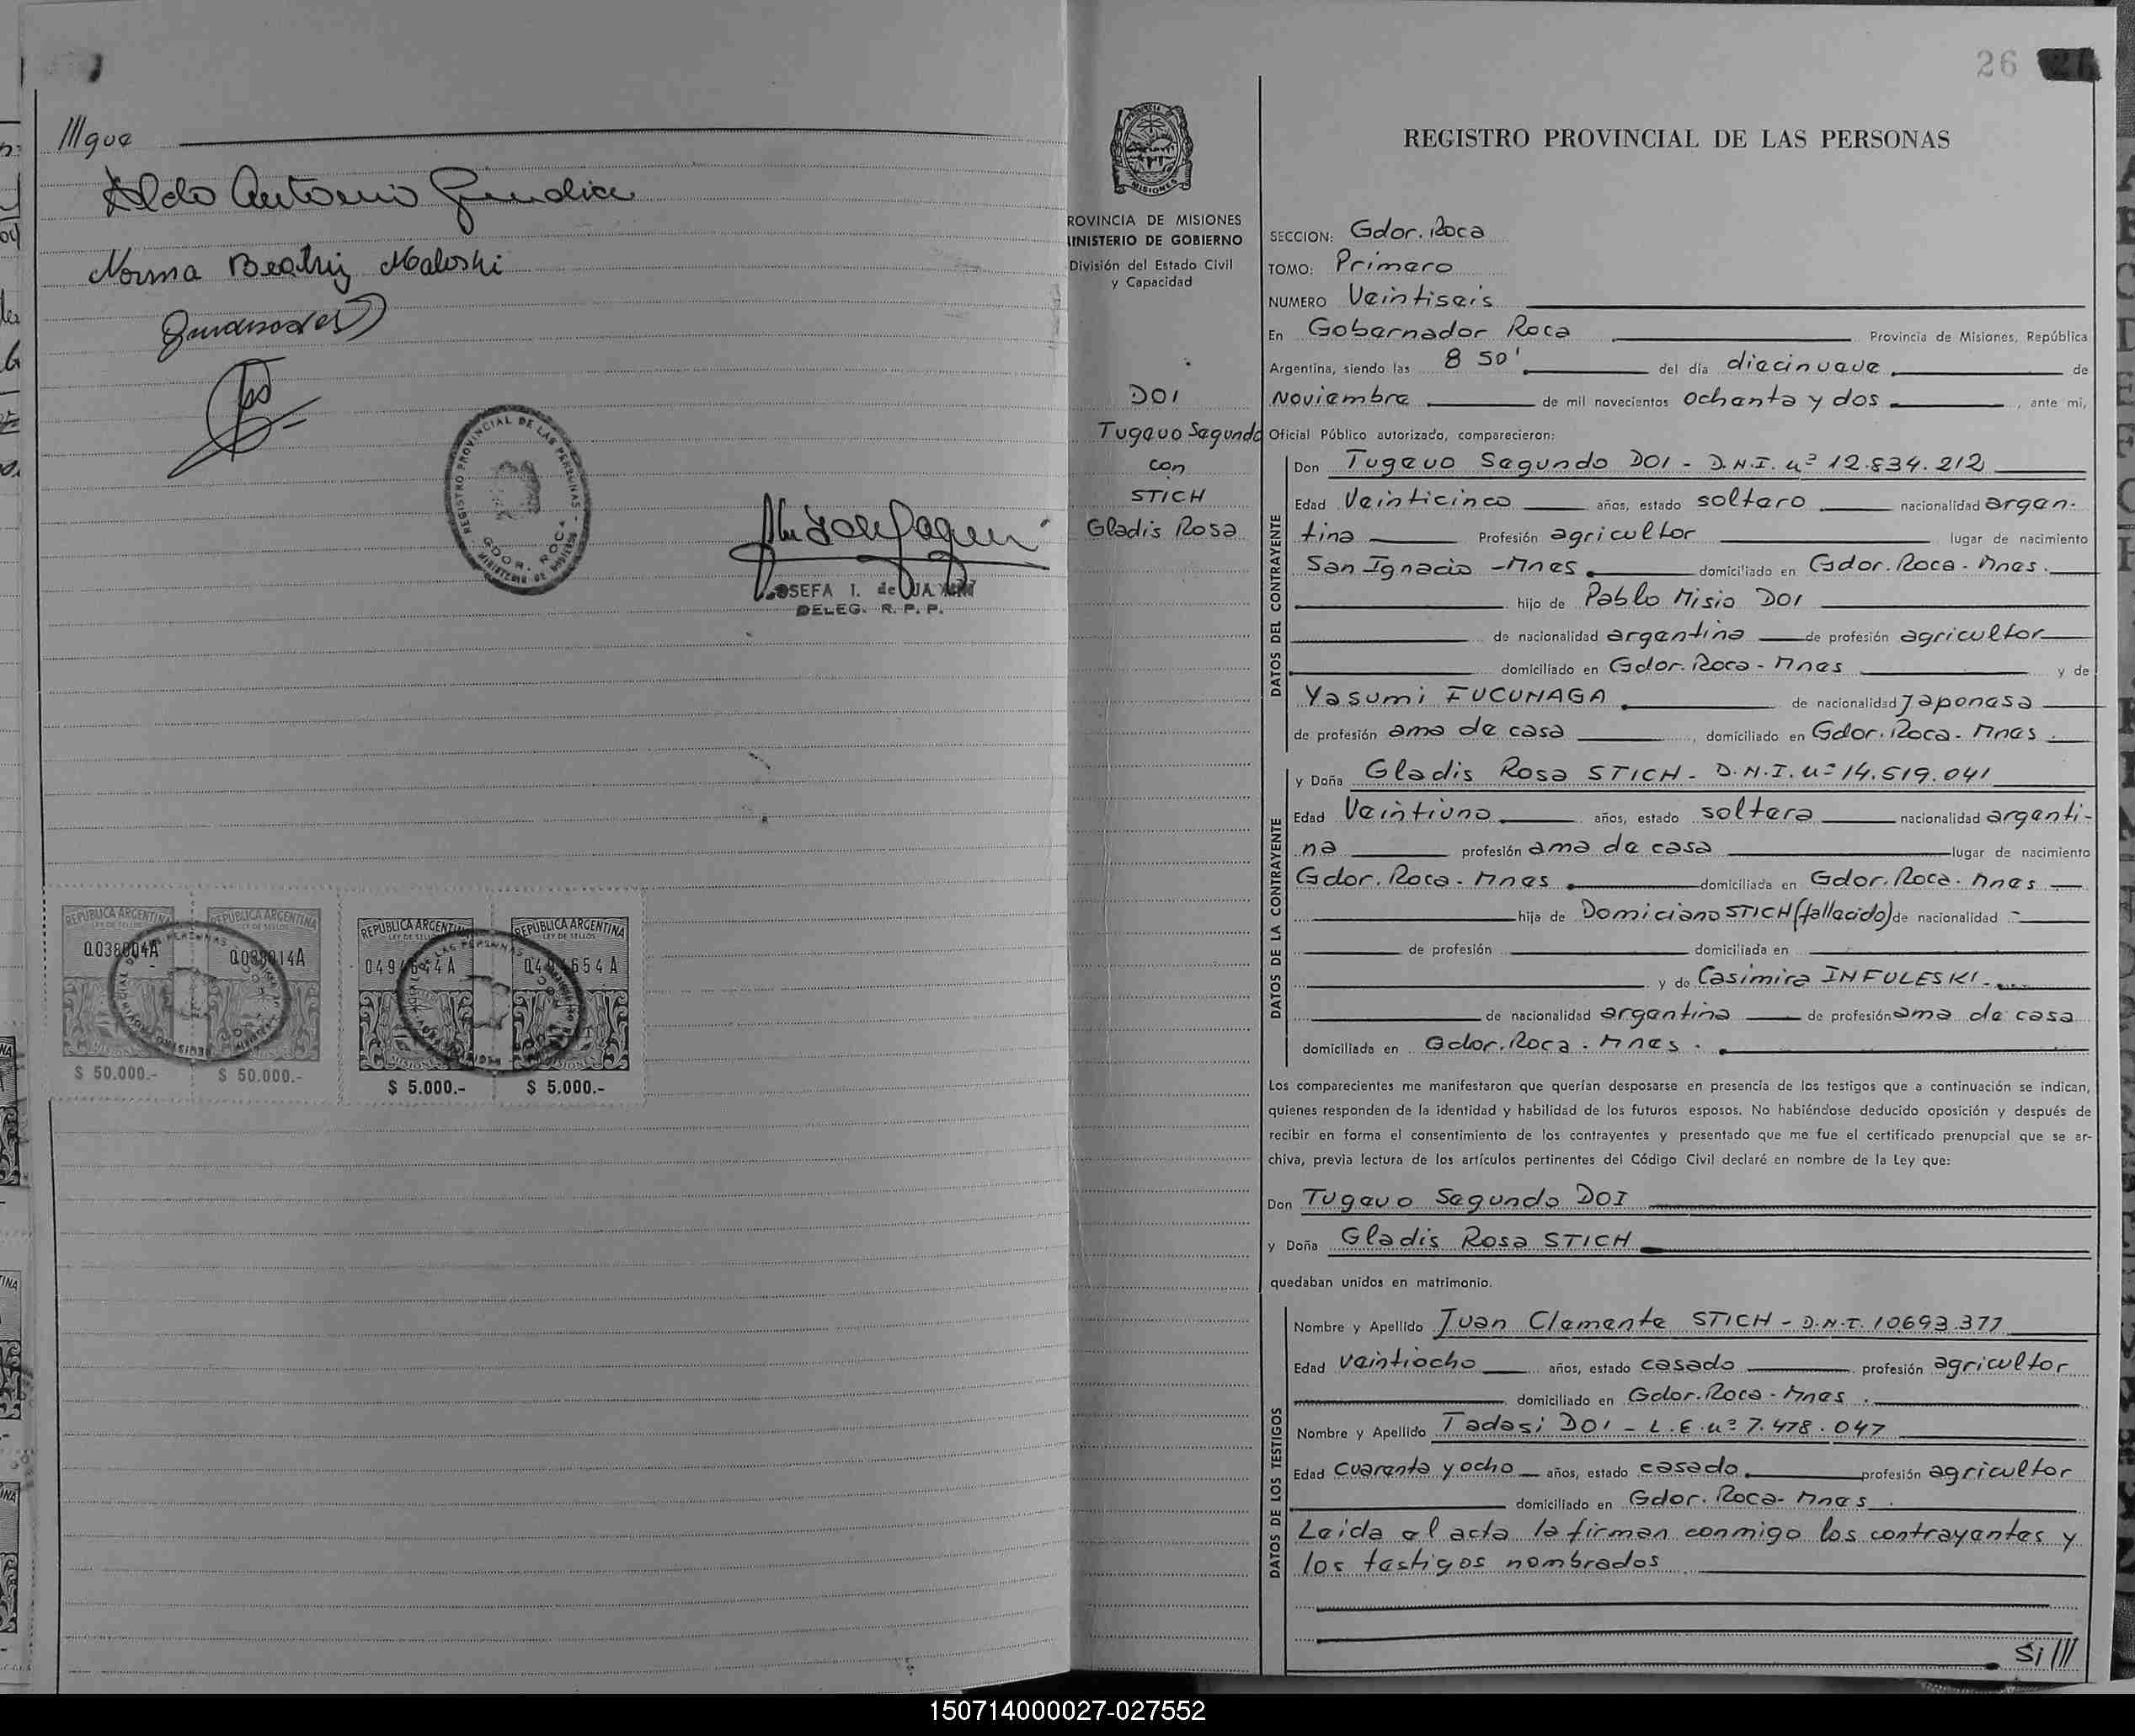 ///que
Aldo Antonio
Norma Beatriz Maloski
REGISTRO PROVINCIAL DE LAS PERSONAS
GDOR. ROCA
JOSEFA I. de
DELEG. R. P. P.
REPUBLICA ARGENTINA REPUBLICA ARGENTINA REPUBLICA ARGENTINA REPUBLICA ARGENTINA
LEY DE SELLOS LEY DE SELLOS
$ 50.000.- $ 50.000.- $ 5.000.- $ 5.000.-
26
MISIONES
ROVINCIA DE MISIONES
INISTERIO DE GOBIERNO
División del Estado Civil
y Capacidad
DOI
Tugavo Segundo
con
STICH
Gladis Rosa
REGISTRO PROVINCIAL DE LAS PERSONAS
SECCION: Gdor. Roca
TOMO: Primero
NUMERO Veintiseis
En Gobernador Roca Provincia de Misiones, República
Argentina, siendo las 8 50' del día diecinueve de
Noviembre de mil novecientos ochenta y dos, ante mí,
Oficial Público autorizado, comparecieron:
DATOS DEL CONTRAYENTE
Don Tugavo Segundo DOI - D.N.I. nº 12.834.212
Edad Veinticinco años, estado soltero nacionalidad argen-
tina Profesión agricultor lugar de nacimiento
San Ignacio - Mnes. domiciliado en Gdor. Roca - Mnes.
hijo de Pablo Misio DOI
de nacionalidad argentina de profesión agricultor
domiciliado en Gdor. Roca - Mnes y de
Yasumi FUCUNAGA de nacionalidad Japonesa
de profesión ama de casa, domiciliado en Gdor. Roca - Mnes.
DATOS DE LA CONTRAYENTE
y Doña Gladis Rosa STICH - D.N.I. nº 14.519.041
Edad Veintiuno años, estado soltera nacionalidad argenti-
na profesión ama de casa lugar de nacimiento
Gdor. Roca - Mnes. domiciliada en Gdor. Roca - Mnes
hija de Domiciano STICH (fallecido) de nacionalidad -
de profesión domiciliada en
y de Casimira INFULESKI -
de nacionalidad argentina de profesión ama de casa
domiciliada en Gdor. Roca - Mnes.
Los comparecientes me manifestaron que querían desposarse en presencia de los testigos que a continuación se indican,
quienes responden de la identidad y habilidad de los futuros esposos. No habiéndose deducido oposición y después de
recibir en forma el consentimiento de los contrayentes y presentado que me fue el certificado prenupcial que se ar-
chiva, previa lectura de los artículos pertinentes del Código Civil declaré en nombre de la Ley que:
Don Tugavo Segundo DOI
y Doña Gladis Rosa STICH
quedaban unidos en matrimonio.
DATOS DE LOS TESTIGOS
Nombre y Apellido Juan Clemente STICH - D.N.I. 10693.377
Edad veintiocho años, estado casado profesión agricultor
domiciliado en Gdor. Roca - Mnes.
Nombre y Apellido Tadasi DOI - L.E. nº 7.478.047
Edad cuarenta y ocho años, estado casado profesión agricultor
domiciliado en Gdor. Roca - Mnes.
Leida el acta la firman conmigo los contrayentes y
los testigos nombrados
Si///
150714000027-027552